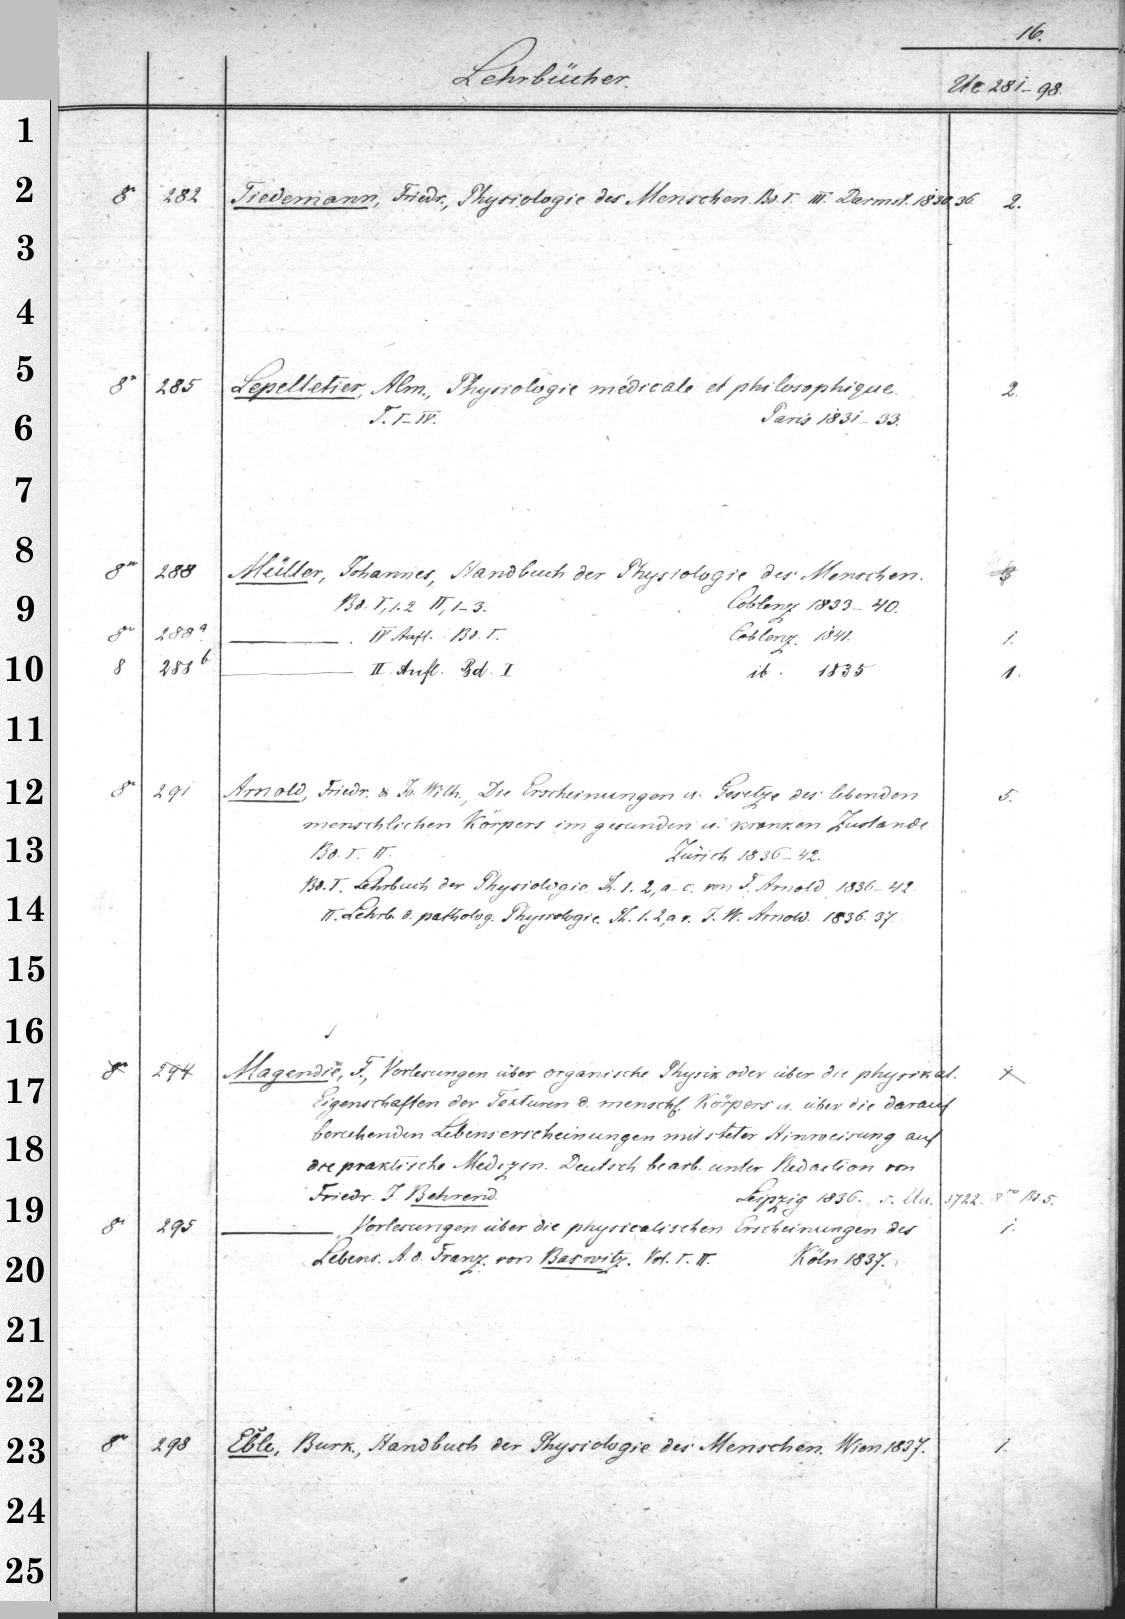 16.
Lehrbücher.
Ue 281-98.
1
2
8° 282 Tiedemann, Friedr., Physiologie des Menschen. Bd. I. III. Darmst. 1830.36. 2.
3
4
5
8° 285 Lepelletier, Alm., Physiologie médicale et philosophique. 2.
T. I-IV. Paris 1831-33.
6
7
8
8° 288 Müller, Johannes, Handbuch der Physiologie des Menschen.
9
Bd. I, 1.2 II, 1-3. Coblenz 1833-40.
8° 288a. ———. IV Aufl. Bd. I. Coblenz. 1841. 1.
10
8 288b ——— II. Aufl. Bd. I ib. 1835 1.
11
12
8° 291 Arnold, Friedr. & Jo. Wilh., Die Erscheinungen u. Gesetze des lebenden 5.
menschlichen Körpers im gesunden u. kranken Zustande
13
Bd. I. II. Zürich 1836-42.
Bd. I. Lehrbuch der Physiologie Th. 1. 2, a-c. von F. Arnold 1836-42.
14
II. Lehrb. d. patholog. Physiologie. Th. 1. 2,a v. J. W. Arnold. 1836.37.
15
16
8° 294 Magendie, F., Vorlesungen über organische Physik oder über die physikal.
17
Eigenschaften der Texturen d. menschl. Körpers u. über die darauf
beruhenden Lebenserscheinungen mit steter Hinweisung auf
18
die praktische Medizin. Deutsch bearb. unter Redaction von
Friedr. J. Behrend. Leipzig 1836. s. Uu. 3722. 8vo Bd. 5.
19
8° 295 ———, Vorlesungen über die physicalischen Erscheinungen des 1.
20
Lebens. A. d. Franz. von Baswitz. Vol. I. II. Köln 1837.
21
22
23
8° 298 Eble, Burk., Handbuch der Physiologie des Menschen. Wien 1837. 1.
24
25